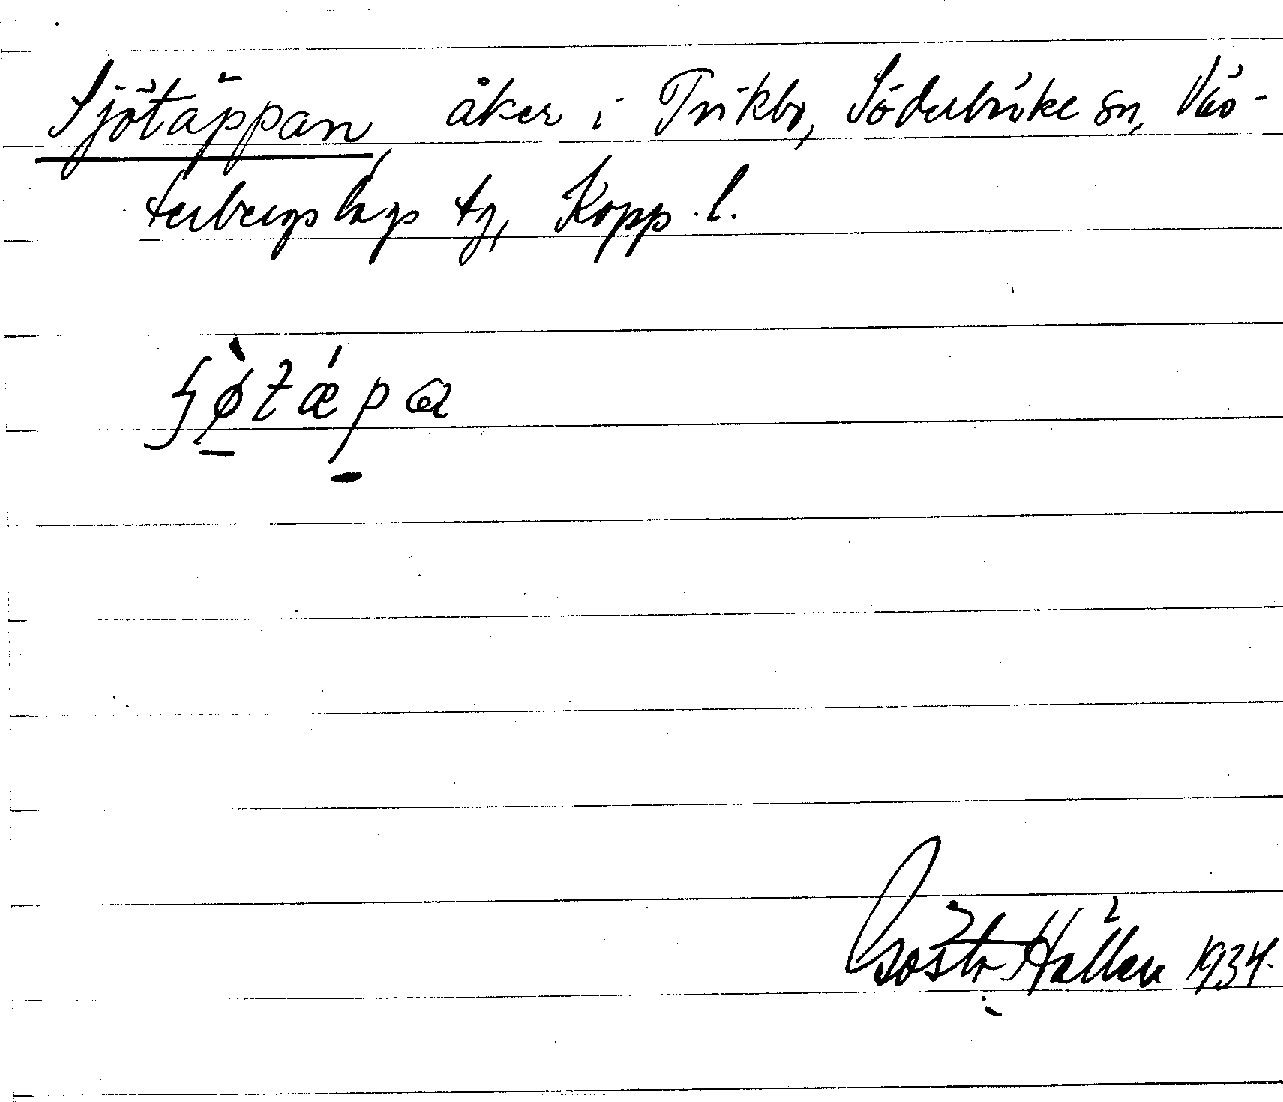 Sjötäppan, åker i Trikbo, Söderbärke sn, Väs-
terbergslags tg, Kopp. l.
Gösta Hallen 1934.